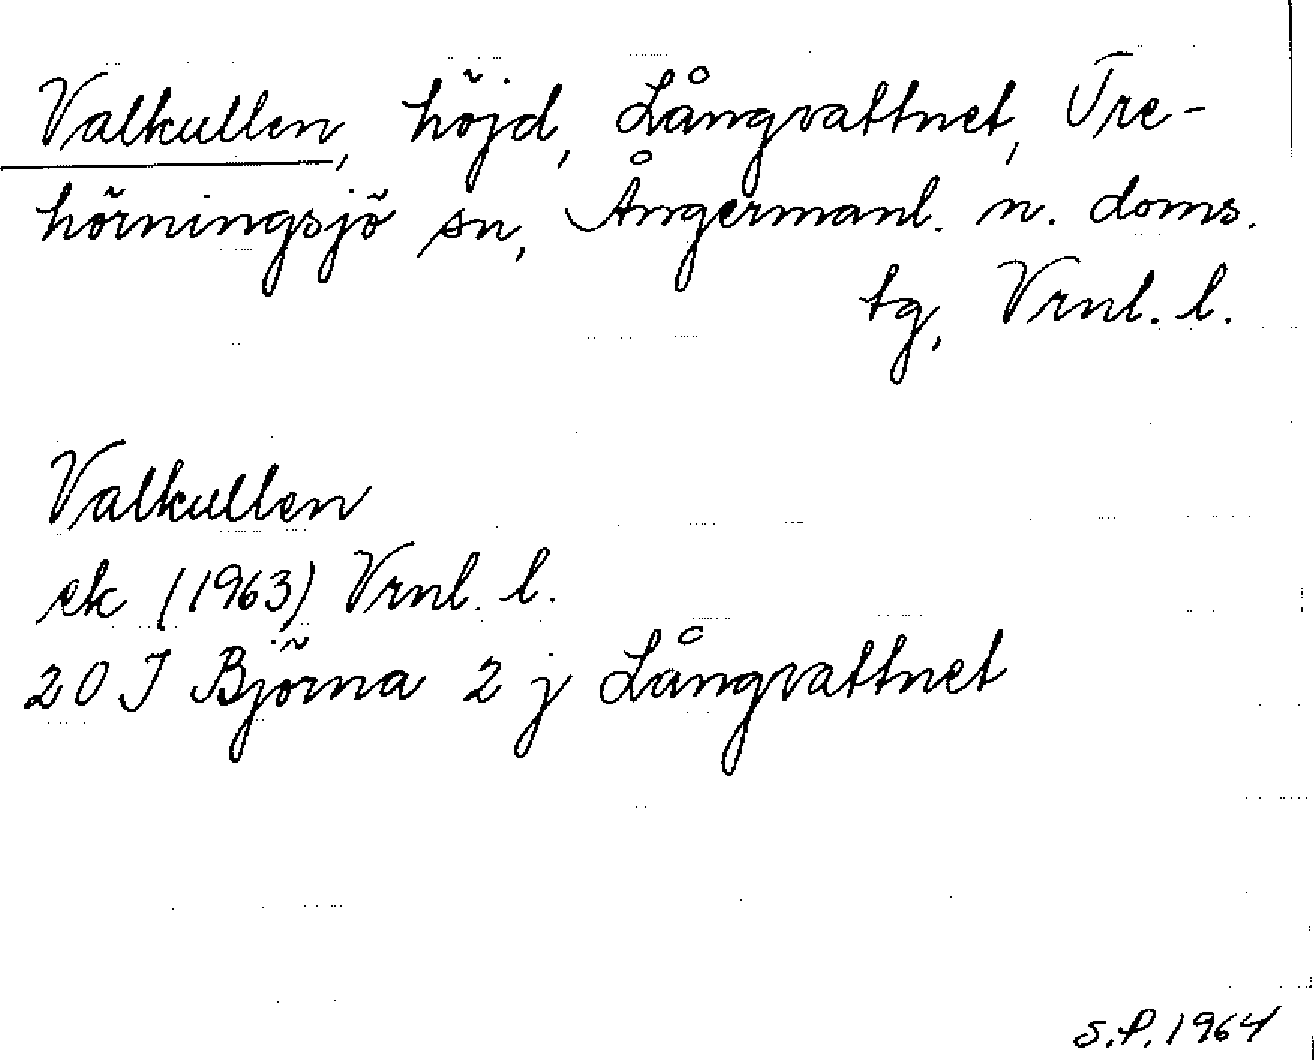 Valkullen, höjd, Långvattnet, Tre-
hörningsjö sn, Ångermanl. n. doms.
tg, Vrnl. l.
Valkullen
ek (1963) Vrnl. l.
20 J Björna 2 j Långvattnet
S.P. 1964